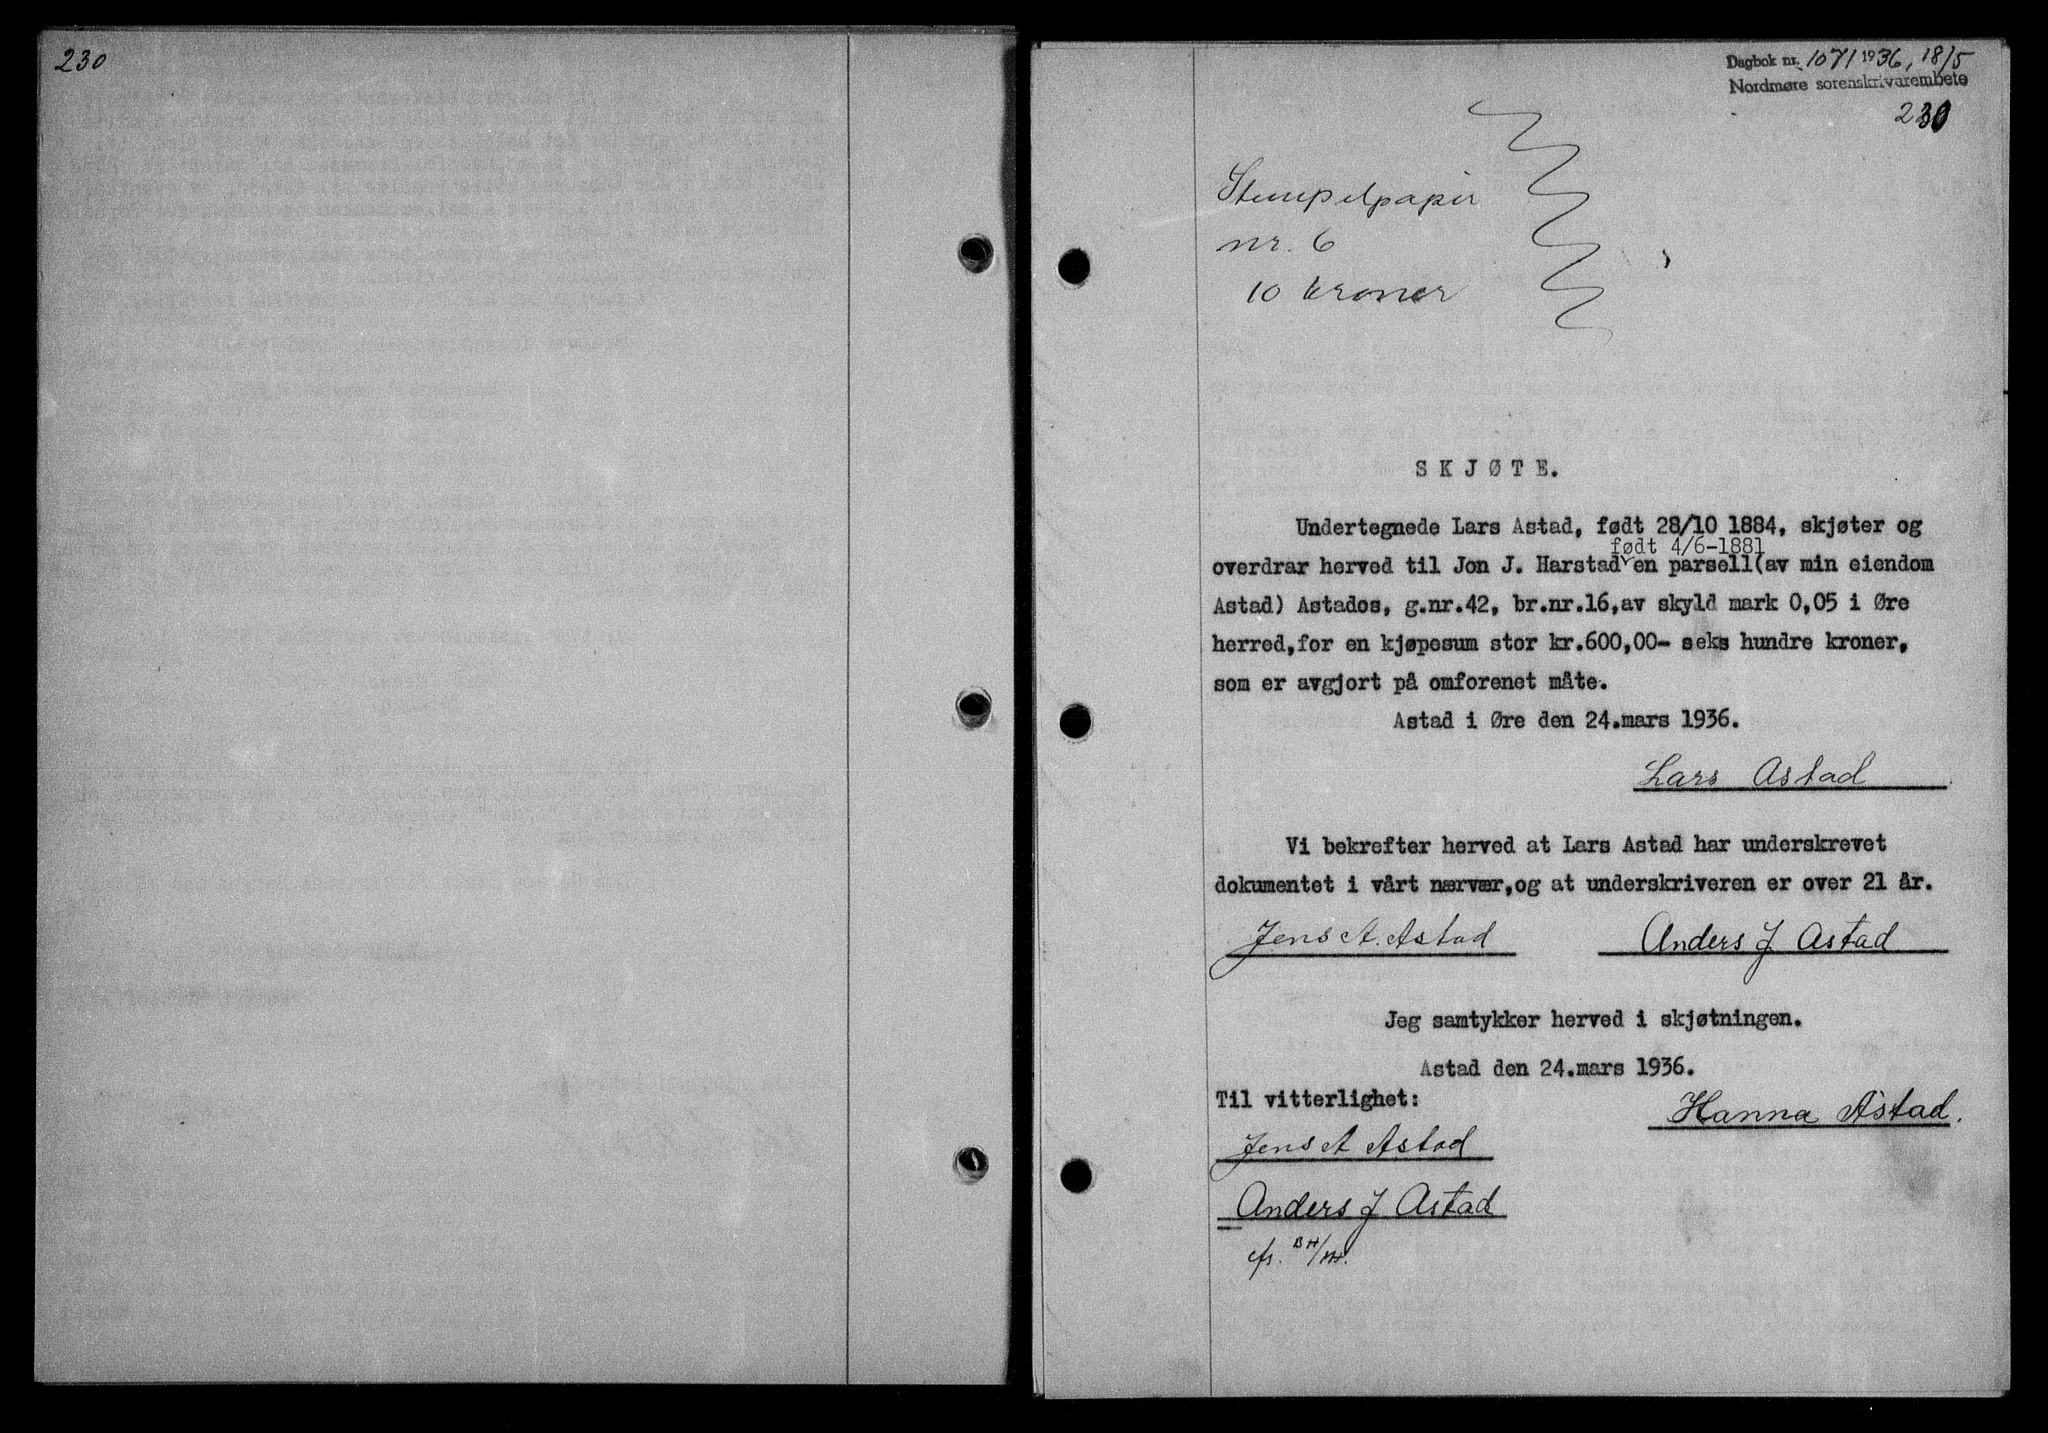 230
Dagbok nr. 1071 1936, 18/5
Nordmøre sorenskrivarembete
230
Stempelpapir
nr. 6
10 kroner
SKJØTE.
Undertegnede Lars Astad, født 28/10 1884, skjøter og
født 4/6-1881
overdrar herved til Jon J. Harstad en parsell (av min eiendom
Astad) Astados, g.nr.42, br.nr.16, av skyld mark 0,05 i Øre
herred, for en kjøpesum stor kr.600,00- seks hundre kroner,
som er avgjort på omforenet måte.
Astad i Øre den 24.mars 1936.
Lars Astad
Vi bekrefter herved at Lars Astad har underskrevet
dokumentet i vårt nærvær, og at underskriveren er over 21 år.
Jens A. Astad Anders J Astad
Jeg samtykker herved i skjøtningen.
Astad den 24.mars 1936.
Til vitterlighet:
Hanna Astad.
Jens A Astad
Anders J Astad